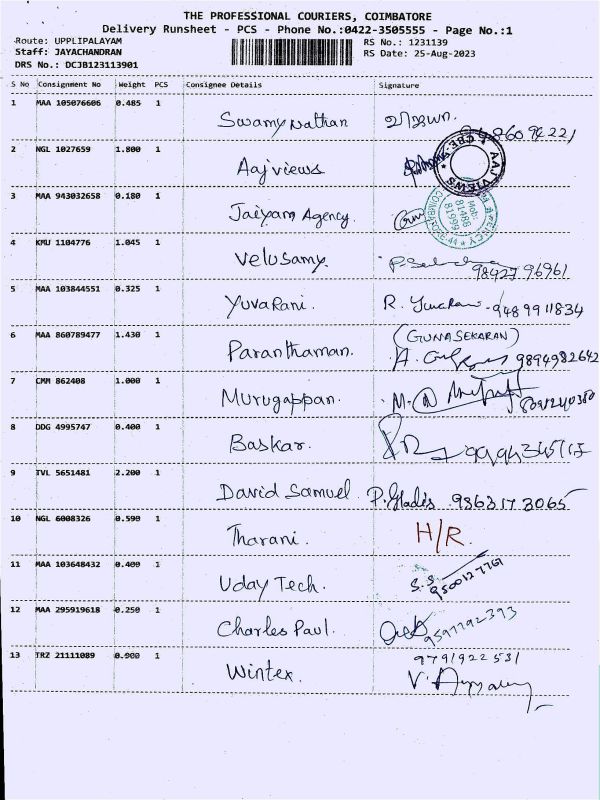 THE PROFESSIONAL COURIERS, COIMBATORE
Delivery Runsheet - PCS - Phone No.:0422-3505555 - Page No.:1
Route: UPPLIPALAYAM
RS No.: 1231139
Staff: JAYACHANDRAN
RS Date: 25-Aug-2023
DRS No.: DCJB123113901
S No Consignment No Weight PCS Consignee Details Signature
1 MAA 105076606 0.485 1 Swamynathan
2 NGL 1027659 1.800 1 Aajviews
AAJ VIEWS CBE
3 MAA 943032658 0.180 1 Jaiyam Agency.
Mob: 81488 81999
COIMBATORE-44
4 KMU 1104776 1.045 1 Velusamy.
9842796961
5 MAA 103844551 0.325 1 YuvaRani. R. -9489911834
6 MAA 860789477 1.430 1 Paranthaman. (GUNASEKARAN)
A. 9894982642
7 CMM 862408 1.000 1 Murugappan. M.
8 DDG 4995747 0.400 1 Baskar.
9 TVL 5651481 2.200 1 David Samuel P. Gladis 9863173065
10 NGL 6008326 0.590 1 Tharani. H/R.
11 MAA 103648432 0.400 1 Uday Tech. S.S.
12 MAA 295919618 0.250 1 Charles Paul. 9597792393
13 TRZ 21111089 0.900 1 Wintex. 9791922531
V.